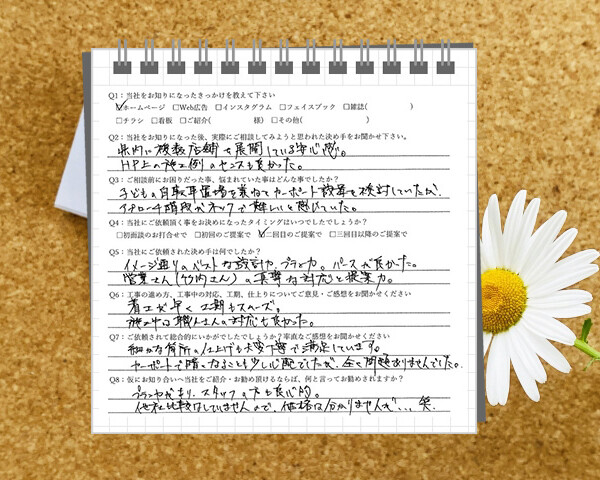 Q1：当社をお知りになったきっかけを教えて下さい
☑ホームページ □Web広告 □インスタグラム □フェイスブック □雑誌( )
□チラシ □看板 □ご紹介( 様) □その他( )
Q2：当社をお知りになった後、実際にご相談してみようと思われた決め手をお聞かせ下さい。
県内に複数店舗を展開している安心感。
HP上の施工例のセンスも良かった。
Q3：ご相談前にお困りだった事、悩まれていた事はどんな事でしたか？
子どもの自転車置場を兼ねてカーポート設置を検討していたが、
アプローチ階段がネックで難しいと感じていた。
Q4：当社にご依頼頂く事をお決めになったタイミングはいつでしたでしょうか？
□初面談のお打合せで □初回のご提案で ☑二回目のご提案で □三回目以降のご提案で
Q5：当社にご依頼された決め手は何でしたか？
イメージ通りのベストな設計力、プラン力。パースが良かった。
営業さん(竹内さん)の真摯な対応と提案力。
Q6：工事の進め方、工事中の対応、工期、仕上りについてご意見・ご感想をお聞かせください
着工が早く工期もスムーズ。
施工中の職人さんの対応も良かった。
Q7：ご依頼されて総合的にいかがでしたでしょうか？率直なご感想をお聞かせください
細かな箇所の仕上げも大変丁寧で満足しています。
カーポートで暗くなることも少し心配でしたが、全く問題ありませんでした。
Q8：仮にお知り合いへ当社をご紹介・お勧め頂けるならば、何と言ってお勧めされますか？
プランが良く、スタッフの方も良心的。
他社比較はしていませんので、価格は分かりませんが…笑